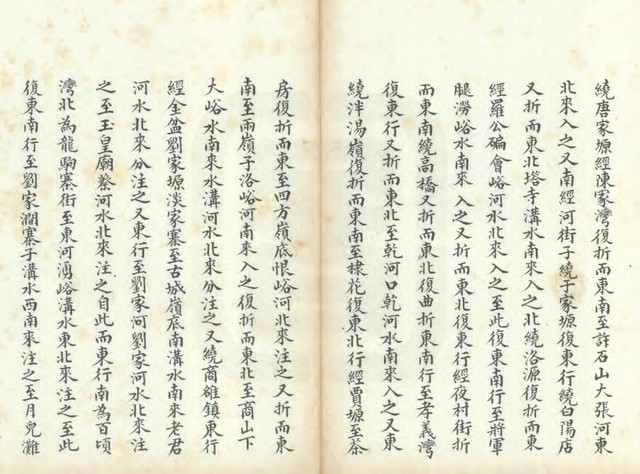 繞唐家塬經陳家灣復折而東南至許石山大張河東
北來入之又南經河街子繞于家塬復東行繞白陽店
又折而東北塔寺溝水南來入之北繞洛源復折而東
經羅公碥會峪河水北來入之至此復東南行至將軍
腿澇峪水南來入之又折而東北復東行經夜村街折
而東南繞高橋又折而東北復曲折東南行至孝義灣
復東行又折而東北至乾河口乾河水南來入之又東
繞泮湯嶺復折而東南至棣花復東北行經賈塬至茶
房復折而東至四方嶺底恨峪河北來注之又折而東
南至兩嶺子洛峪河南來入之復折而東北至商山下
大峪水南來水溝河水北來分注之又繞商雒鎮東行
經金盆劉家塬淡家寨至古城嶺底南溝水南來老君
河水北來分注之又東行至劉家河劉家河水北來注
之至玉皇廟嫯河水北來注之自此而東行南為百頃
灣北為龍駒寨街至東河湧峪溝水東北來注之至此
復東南行至劉家澗寨子溝水西南來注之至月兒灘